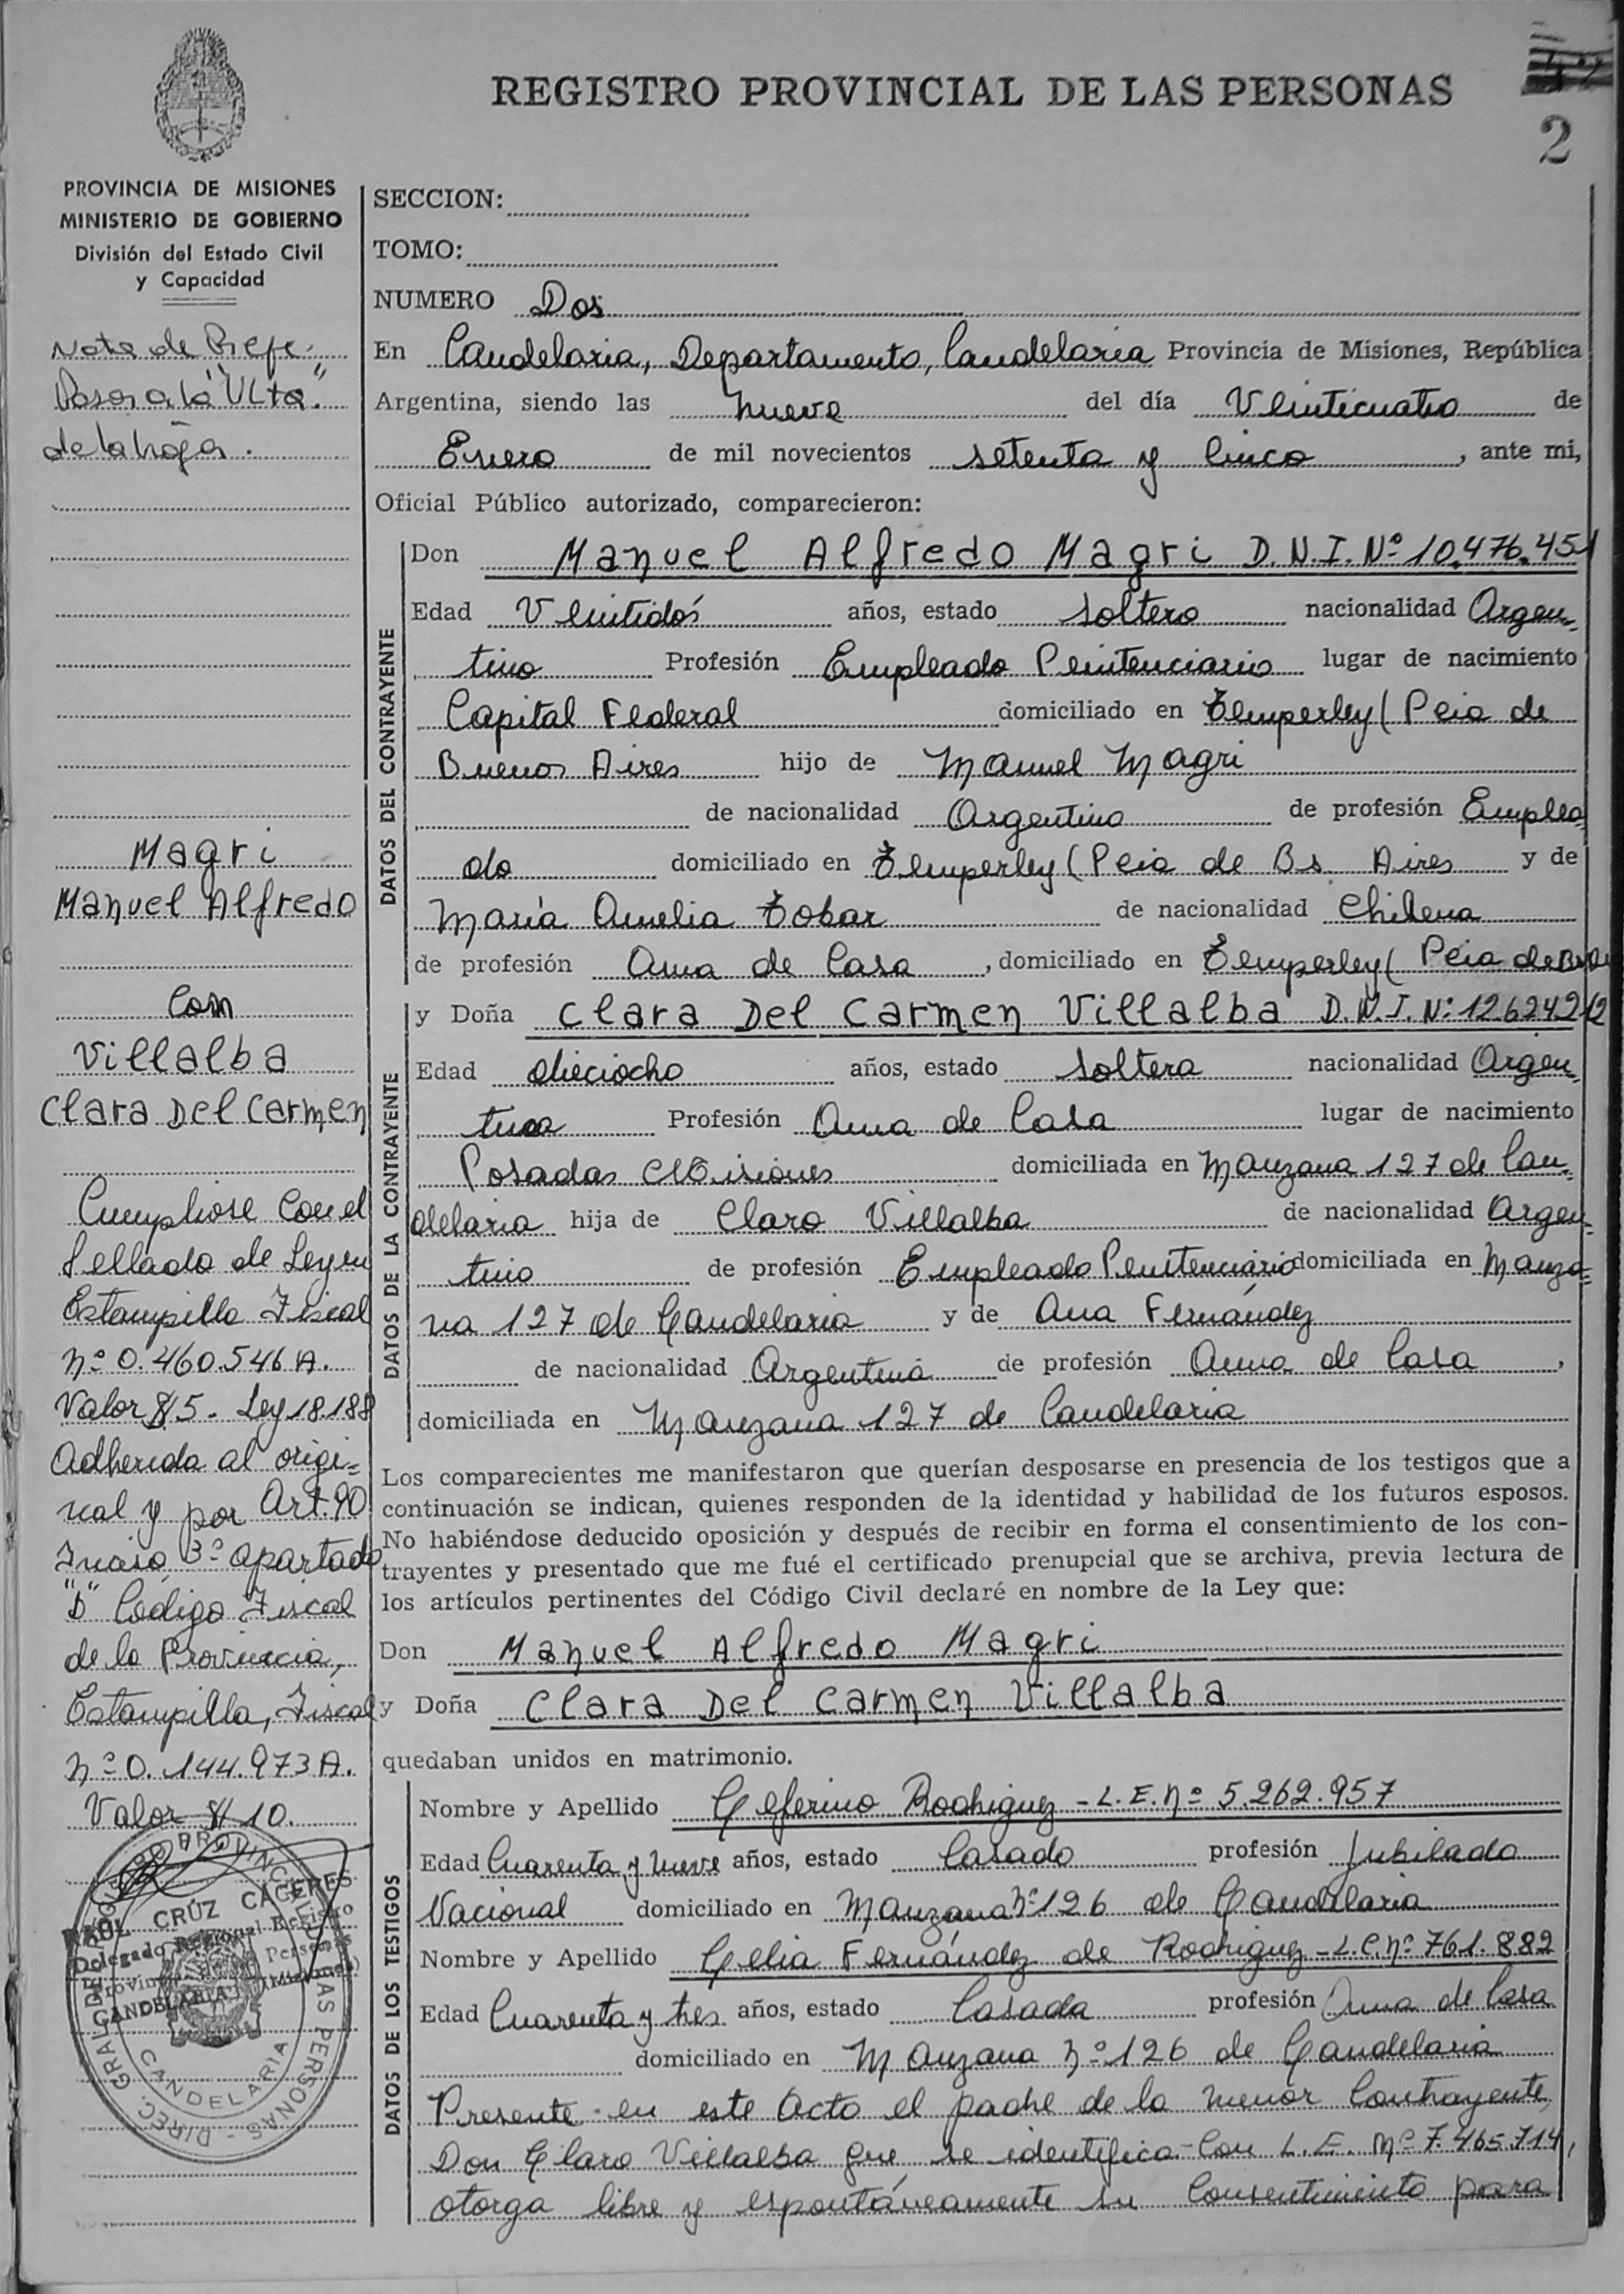 REGISTRO PROVINCIAL DE LAS PERSONAS
2
PROVINCIA DE MISIONES
MINISTERIO DE GOBIERNO
División del Estado Civil
y Capacidad
Nota de Refe.
Pasar a la "Vlta."
de la hoja.
Magri
Manuel Alfredo
Con
Villalba
Clara Del Carmen
Cumpliose con el
Sellado de Ley en
Estampilla Fiscal
Nº 0.460.546 A.
Valor $ 5. Ley 18.188
Adherida al origi=
nal y por Art. 90
Inciso 3º apartado
"D" Código Fiscal
de la Provincia,
Estampilla, Fiscal
Nº 0.144.973 A.
Valor $ 10.
RAUL CRUZ CACERES
Delegado Regional Registro
Provincial de las Personas
CANDELARIA (Misiones)
SECCION:
TOMO:
NUMERO Dos
En Candelaria, Departamento, Candelaria Provincia de Misiones, República
Argentina, siendo las nueve del día Veinticuatro de
Enero de mil novecientos setenta y Cinco, ante mi,
Oficial Público autorizado, comparecieron:
DATOS DEL CONTRAYENTE
Don Manuel Alfredo Magri D.N.I. Nº 10.476.451
Edad Veintidós años, estado Soltero nacionalidad Argen=
tino Profesión Empleado Penitenciario lugar de nacimiento
Capital Federal domiciliado en Temperley (Pcia de
Buenos Aires hijo de Manuel Magri
de nacionalidad Argentino de profesión Emplea
do domiciliado en Temperley (Pcia de Bs. Aires y de
María Amelia Tobar de nacionalidad Chilena
de profesión Ama de Casa, domiciliado en Temperley (Pcia de
DATOS DE LA CONTRAYENTE
y Doña Clara Del Carmen Villalba D.N.I. Nº 12624212
Edad dieciocho años, estado Soltera nacionalidad Argen=
tina Profesión Ama de Casa lugar de nacimiento
Posadas Misiones domiciliada en Manzana 127 de Can=
delaria hija de Claro Villalba de nacionalidad Argen=
tino de profesión Empleado Penitenciario domiciliada en Manza=
na 127 de Candelaria y de Ana Fernández
de nacionalidad Argentina de profesión Ama de Casa,
domiciliada en Manzana 127 de Candelaria
Los comparecientes me manifestaron que querían desposarse en presencia de los testigos que a
continuación se indican, quienes responden de la identidad y habilidad de los futuros esposos.
No habiéndose deducido oposición y después de recibir en forma el consentimiento de los con-
trayentes y presentado que me fué el certificado prenupcial que se archiva, previa lectura de
los artículos pertinentes del Código Civil declaré en nombre de la Ley que:
Don Manuel Alfredo Magri
y Doña Clara Del Carmen Villalba
quedaban unidos en matrimonio.
DATOS DE LOS TESTIGOS
Nombre y Apellido Ceferino Rodriguez - L.E. Nº 5.262.957
Edad Cuarenta y nueve años, estado Casado profesión Jubilado
Nacional domiciliado en Manzana Nº 126 de Candelaria
Nombre y Apellido Celia Fernández de Rodriguez - L.C. Nº 761.882
Edad Cuarenta y tres años, estado Casada profesión Ama de Casa
domiciliado en Manzana Nº 126 de Candelaria
Presente en este Acto el padre de la menor Contrayente,
Don Claro Villalba que se identifica con L.E. Nº 7.465.714,
otorga libre y espontáneamente su Consentimiento para